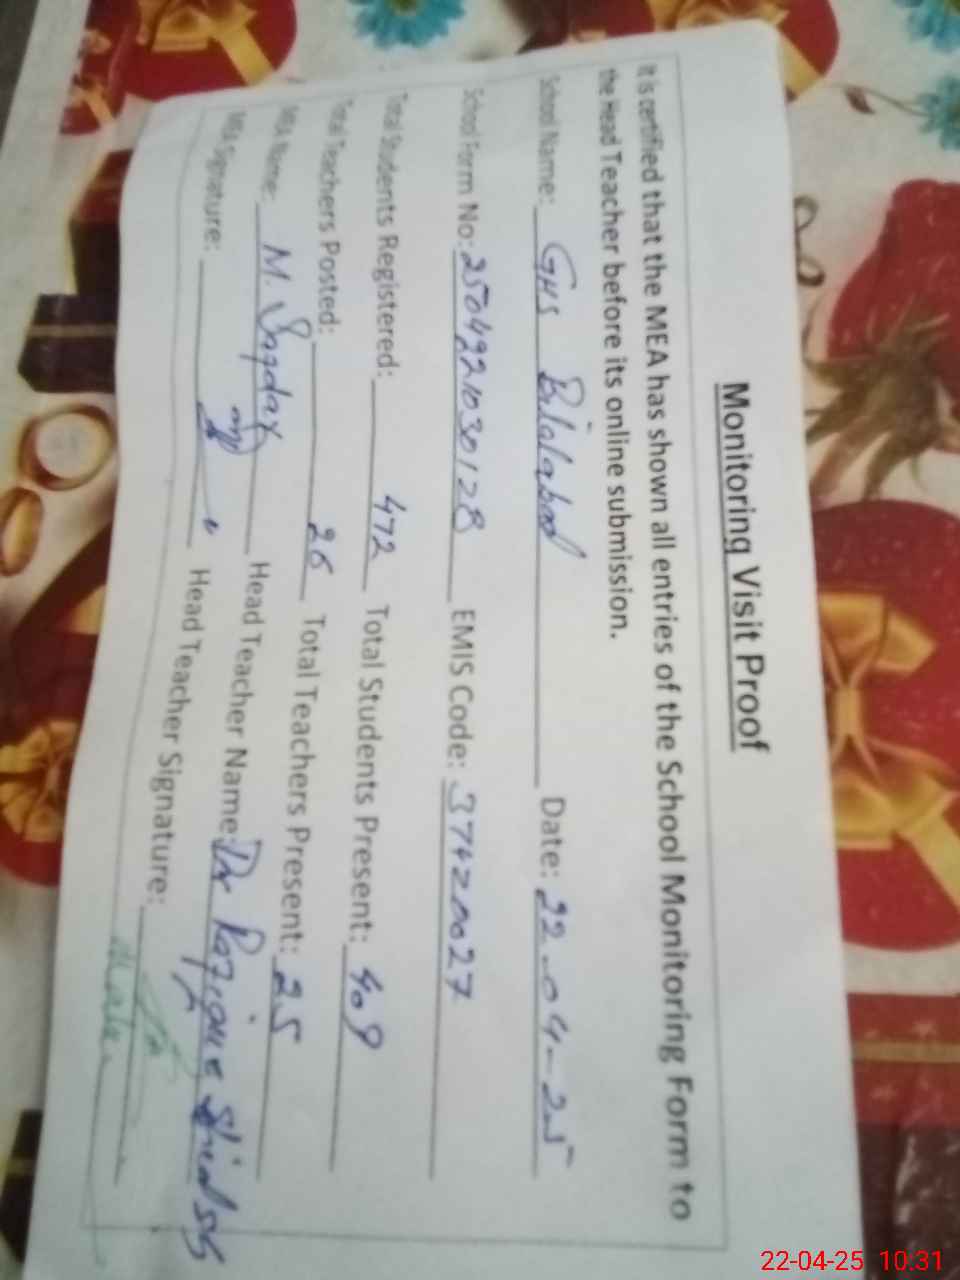 Monitoring Visit Proof
It is certified that the MEA has shown all entries of the School Monitoring Form to
the Head Teacher before its online submission.
School Name: GHS Bilalabad Date: 22-04-25
School Form No: 2504221030128 EMIS Code: 37420027
Total Students Registered: 472 Total Students Present: 409
Total Teachers Posted: 26 Total Teachers Present: 25
MEA Name: M. Head Teacher Name: Dr
MEA Signature: Head Teacher Signature:
22-04-25 10:31